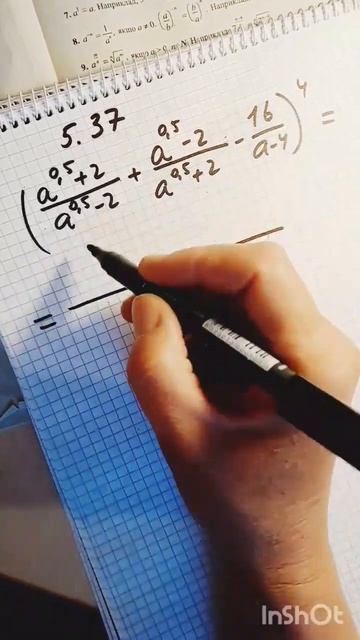 7. a¹ = a. Наприклад,
8. a⁻ⁿ = 1/aⁿ, якщо a ≠ 0. (a/b)⁻ⁿ = (b/a)ⁿ. Наприклад,
9. якщо a ≥ 0, n∈N. Наприклад
5.37
((a^0,5+2)/(a^0,5-2) + (a^0,5-2)/(a^0,5+2) - 16/(a-4))^4 =
=
InShOt